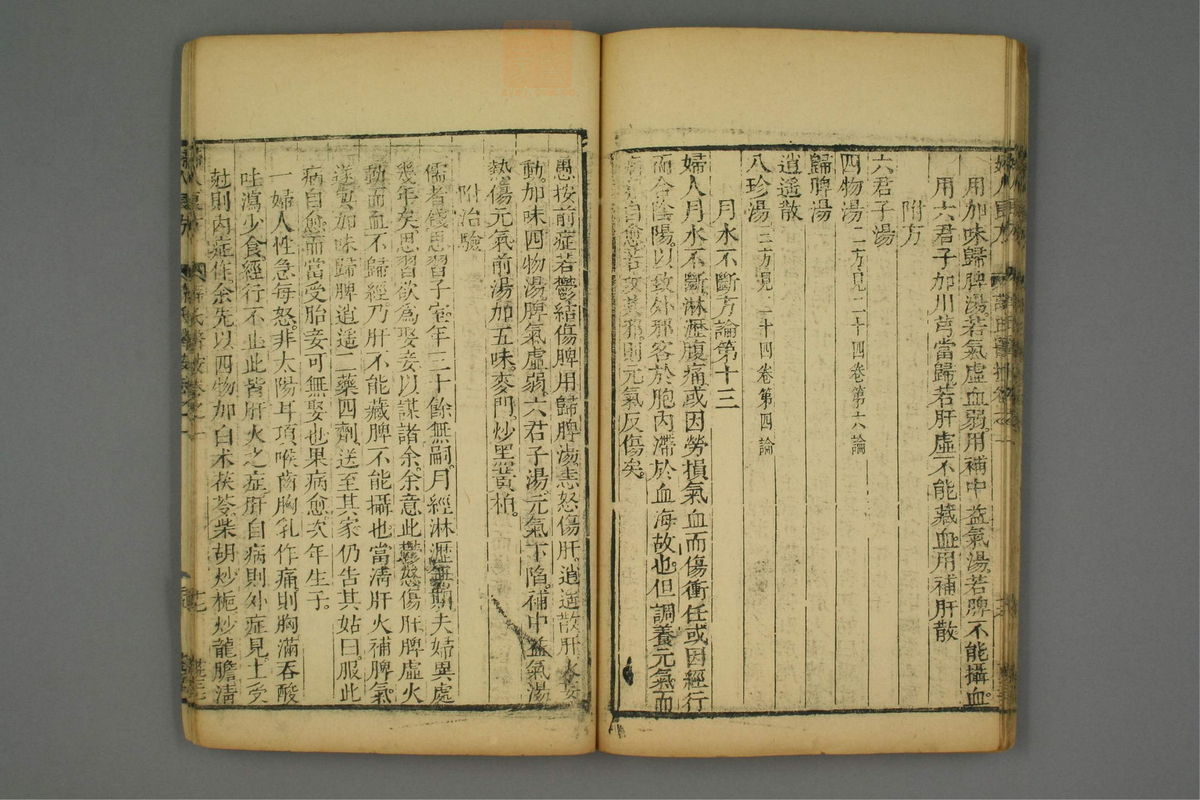 用加味歸脾湯若氣虛血弱用補中益氣湯若脾不能攝血
用六君子加川芎當歸若肝虛不能藏血用補肝散
附方
六君子湯
四物湯二方見二十四卷第六論
歸脾湯
逍遥散
八珍湯三方見二十四卷第四論
月水不斷方論第十三
婦人月水不斷淋瀝腹痛或因勞損氣血而傷衝任或因經行
而合陰陽以致外邪客於胞内滯於血海故也但調養元氣而
病自愈若攻其邪則元氣反傷矣
愚按前症若鬱結傷脾用歸脾湯恚怒傷肝逍遥散肝火妄
動加味四物湯脾氣虛弱六君子湯元氣下陷補中益氣湯
熱傷元氣前湯加五味麥門炒黑黃柏
附治驗
儒者錢思習子室年三十餘無嗣月經淋瀝無期夫婦異處
幾年矣思習欲爲娶妾以謀諸余余意此鬱怒傷肝脾虛火
動而血不歸經乃肝不能藏脾不能攝也當清肝火補脾氣
遂與加味歸脾逍遥二藥四劑送至其家仍告其姑曰服此
病自愈而當受胎妾可無娶也果病愈次年生子
一婦人性急每怒非太陽耳項喉齒胸乳作痛則胸滿吞酸
吐瀉少食經行不止此皆肝火之症肝自病則外症見土受
尅則内症作余先以四物加白朮茯苓柴胡炒梔炒龍膽清